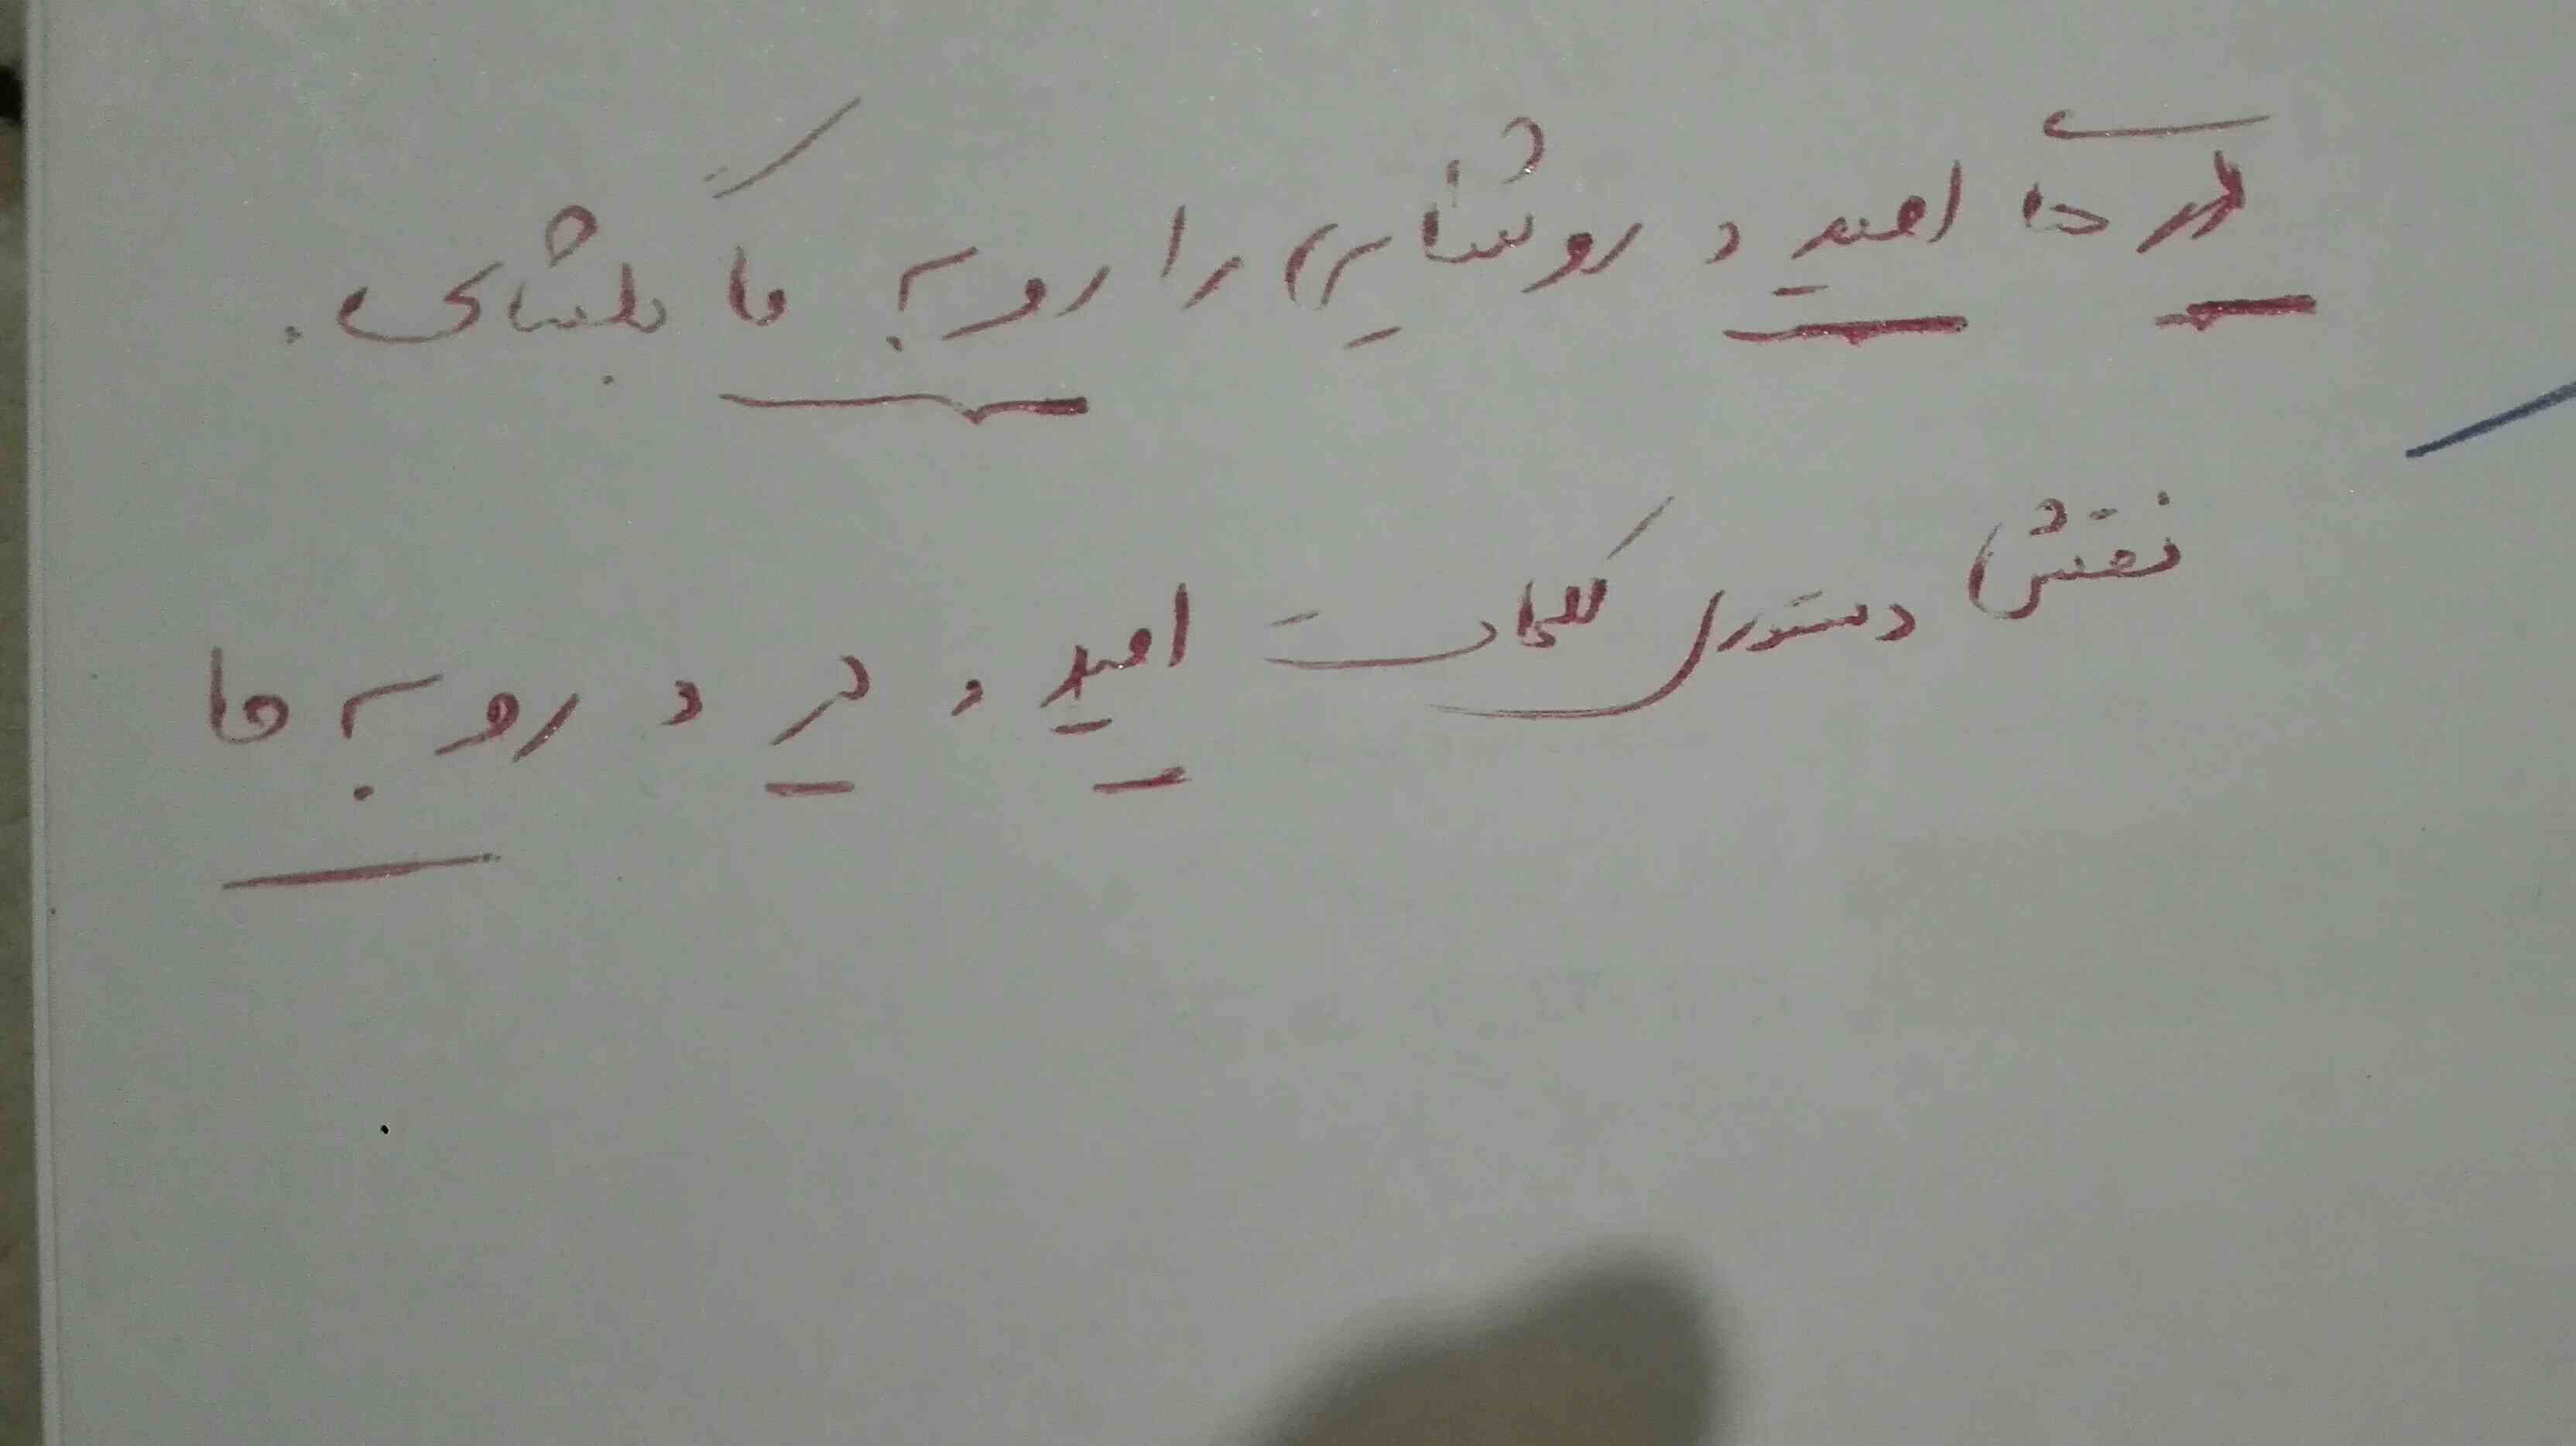 درهای امید و روشنایی را رو به ما بگشای.
نقش دستوری کلمات امید و در و رو به ما